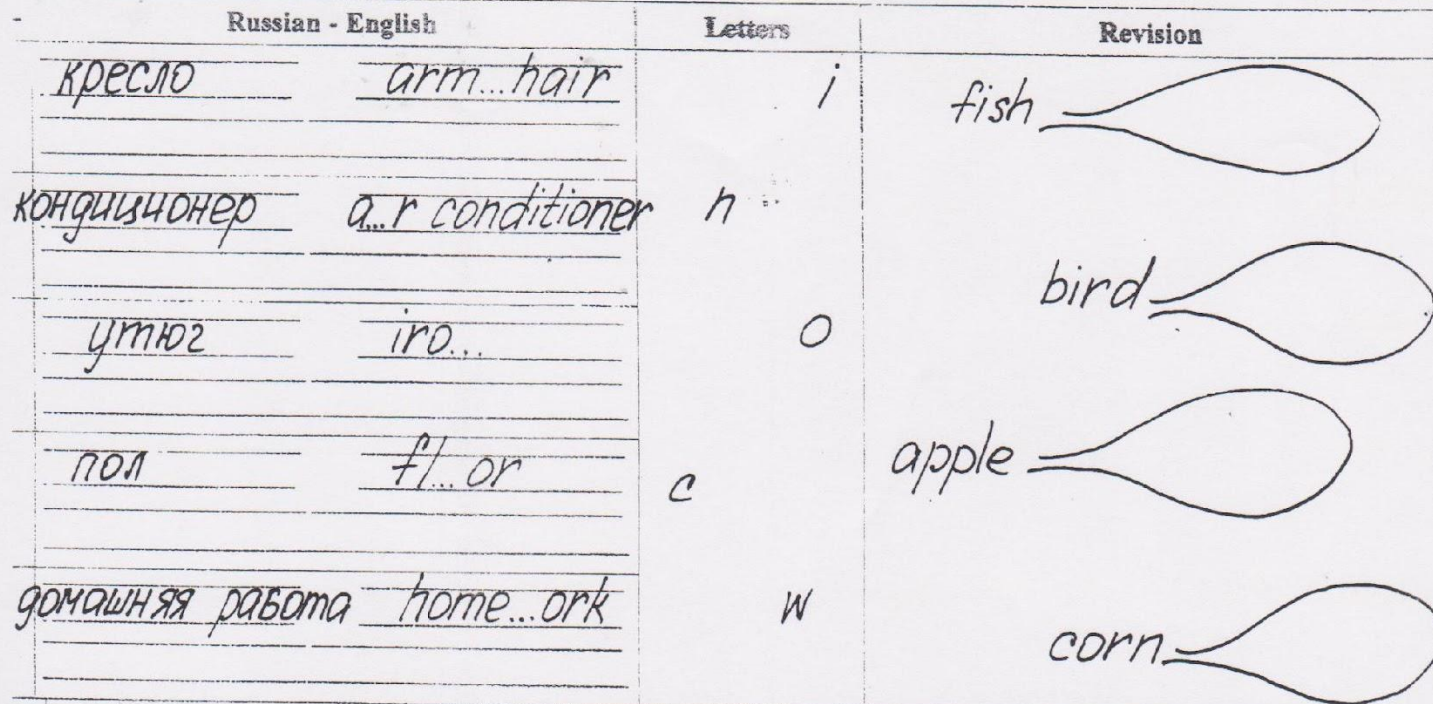 Russian - English Letters Revision
кресло arm...hair i fish
кондиционер a...r conditioner n
bird
утюг iro... o
пол fl...or c apple
домашняя работа home...ork w
corn